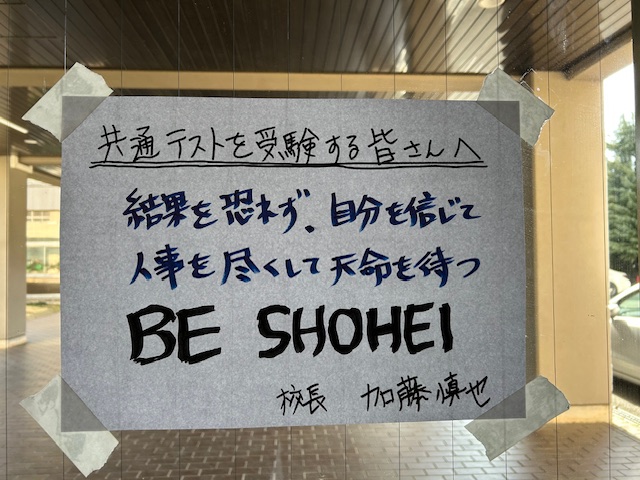 共通テストを受験する皆さんへ
結果を恐れず、自分を信じて
人事を尽くして天命を待つ
BE SHOHEI
校長 加藤慎也